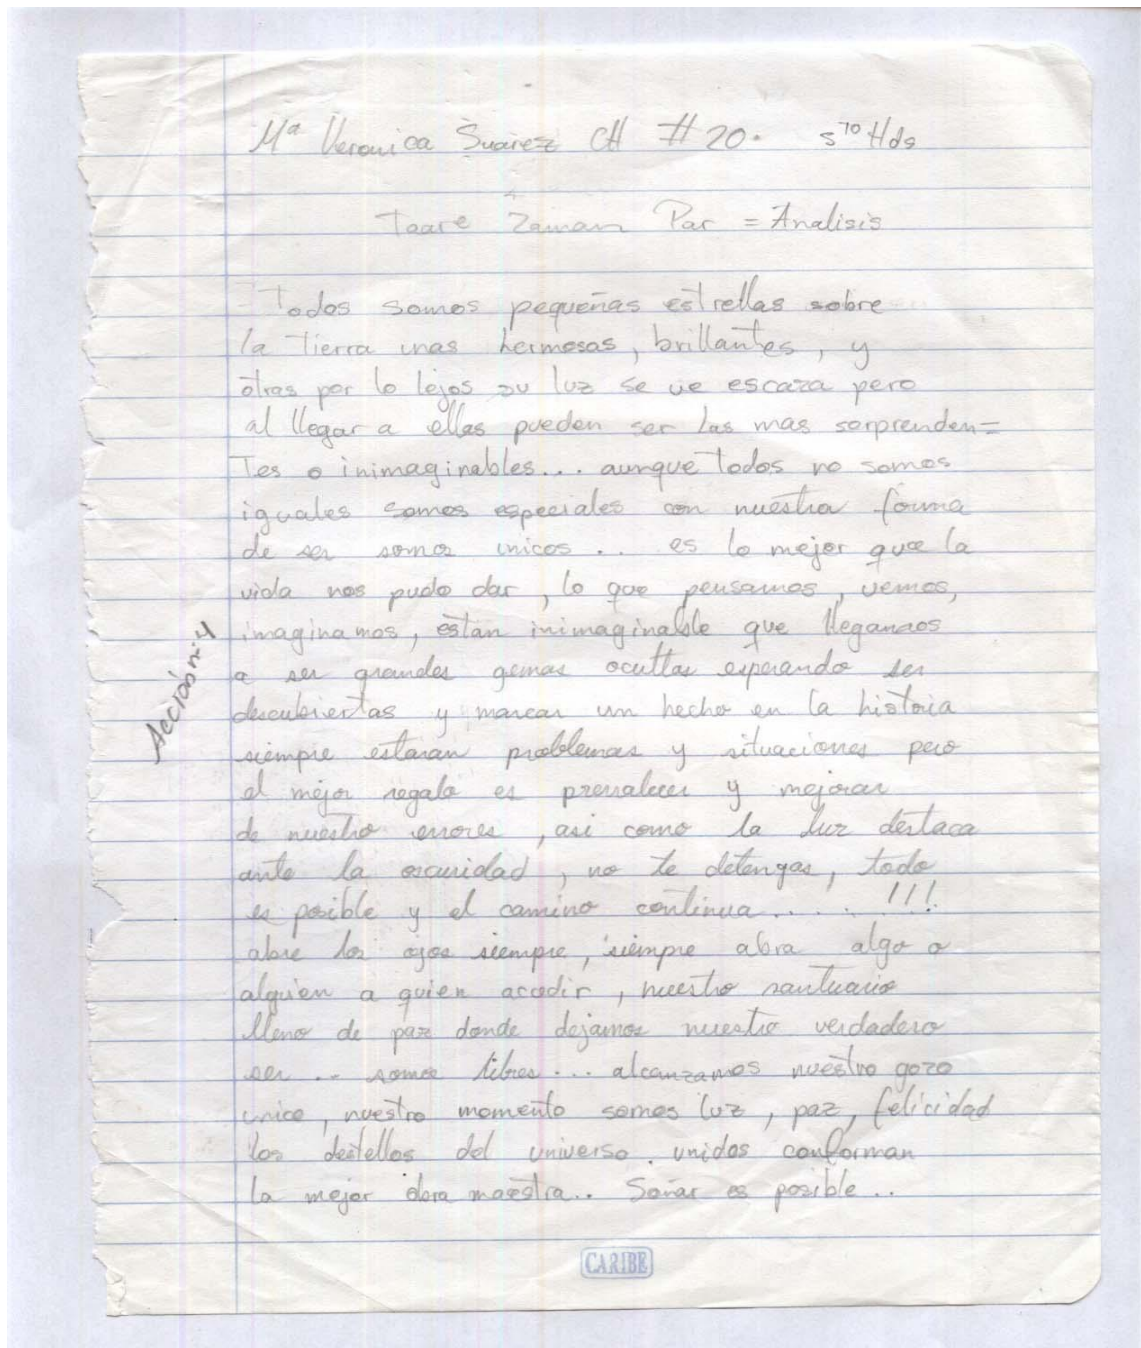 Mª Veronica Suarez CH #20. 5to Hds
Taare Zaman Par = Analisis
Todos somos pequeñas estrellas sobre
la tierra unas hermosas, brillantes, y
otras por lo lejos su luz se ve escaza pero
al llegar a ellas pueden ser las mas sorprenden=
tes o inimaginables... aunque todos no somos
iguales somos especiales con nuestra forma
de ser somos unicos .. es lo mejor que la
vida nos pudo dar, lo que pensamos, vemos,
imaginamos, estan inimaginable que llegamos
a ser grandes gemas ocultas esperando ser
descubiertas y marcar un hecho en la historia
siempre estaran problemas y situaciones pero
el mejor regalo es prevalecer y mejorar
de nuestro errores, asi como la luz destaca
ante la oscuridad, no te detengas, todo
es posible y el camino continua ..... !!!
abre los ojos siempre, siempre abra algo o
alguien a quien acudir, nuestro santuario
lleno de paz donde dejamos nuestro verdadero
ser ... somos libres ... alcanzamos nuestro gozo
unico, nuestro momento somos luz, paz, felicidad
los destellos del universo. unidos conforman
la mejor obra maestra.. Soñar es posible..
Acción:4
CARIBE